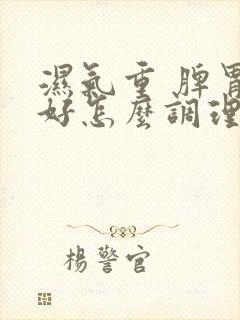 濕氣重 脾胃
好怎麼調理
楊警官